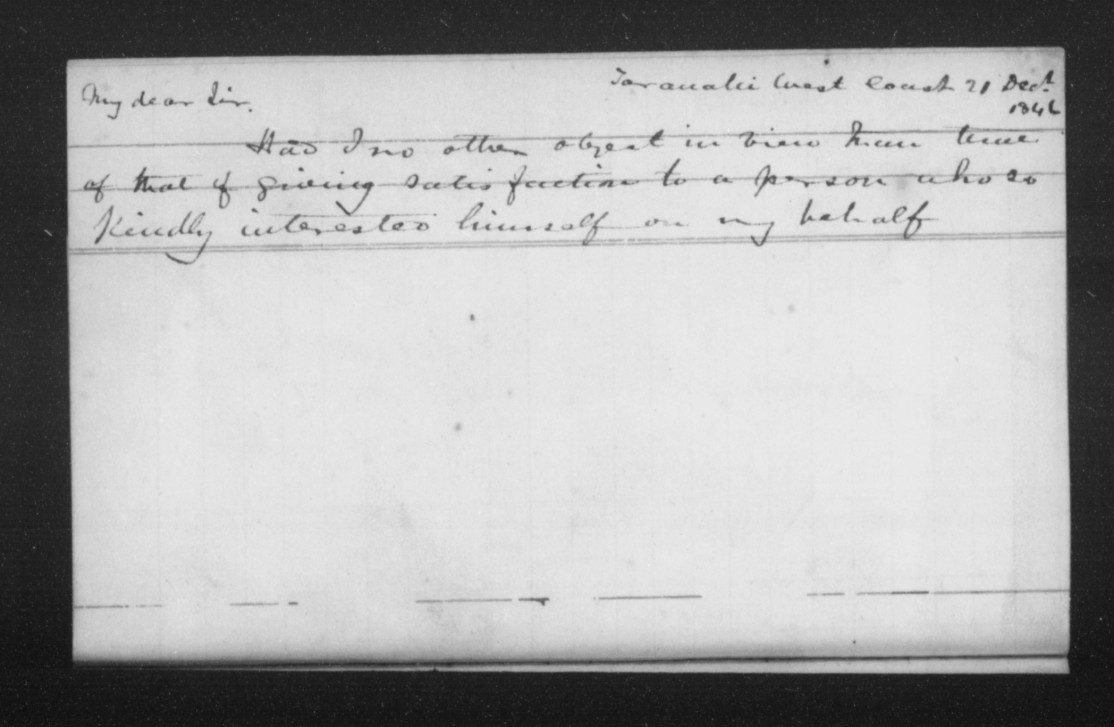 Taranaki West Coast 21 Decr.
My dear Sir.
Had I no other object in view than
of that of giving satisfaction to a person who so
kindly interested himself on my behalf